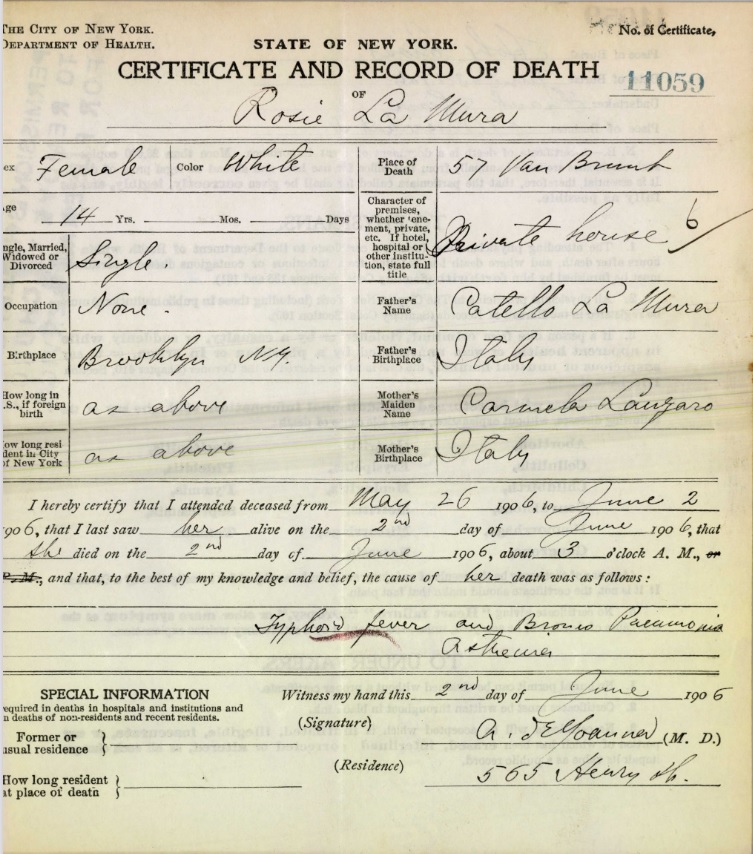 THE CITY OF NEW YORK.
DEPARTMENT OF HEALTH.
STATE OF NEW YORK.
No. of Certificate,
CERTIFICATE AND RECORD OF DEATH
11059
OF
Rosie La Mura
Sex Female Color White
Place of Death 57 Van Brunt
Age 14 Yrs. Mos. Days
Character of premises, whether tenement, private, etc. If hotel, hospital or other institution, state full title Private house 6
Single, Married, Widowed or Divorced Single.
Occupation None.
Father's Name Catello La Mura
Birthplace Brooklyn N.Y.
Father's Birthplace Italy
How long in U.S., if foreign birth as above
Mother's Maiden Name Carmela
How long resident in City of New York as above
Mother's Birthplace Italy
I hereby certify that I attended deceased from May 26 1906, to June 2
1906, that I last saw her alive on the 2nd day of June 1906, that
she died on the 2nd day of June 1906, about 3 o'clock A. M., or
P. M., and that, to the best of my knowledge and belief, the cause of her death was as follows:
Typhoid fever and Bronco Pneumonia
Asthenia
SPECIAL INFORMATION
required in deaths in hospitals and institutions and
in deaths of non-residents and recent residents.
Former or usual residence
How long resident at place of death
Witness my hand this 2nd day of June 1906
(Signature) (M. D.)
(Residence) 565 Henry St.